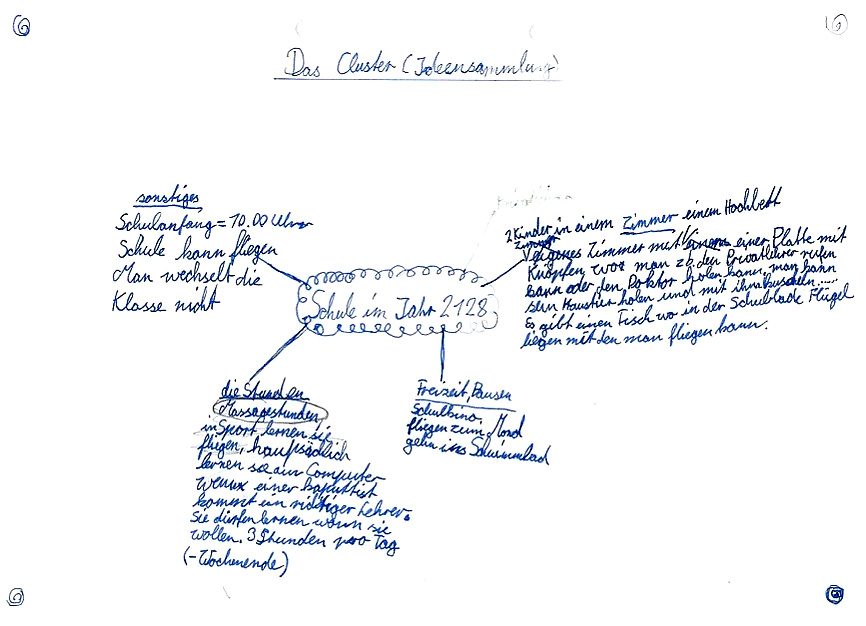 Das Cluster (Ideensammlung)
sonstiges
Schulanfang = 10.00 Uhr
Schule kann fliegen
Man wechselt die
Klasse nicht
2 Kinder in einem Zimmer einem Hochbett
Zimmer
eigenes Zimmer mit einer Platte mit
Knöpfen, wo man zb den Privatlehrer rufen
kann oder den Doktor holen kann, man kann
sein Haustier holen und mit ihm kuscheln.....
Es gibt einen Tisch wo in der Schublade Flügel
liegen mit den man fliegen kann.
Schule im Jahr 2128
die Stunden
Massagestunden,
in Sport lernen sie
fliegen, haupsächlich
lernen sie am Computer
wenn einer kaputt ist
kommt ein richtiger Lehrer.
Sie dürfen lernen wann sie
wollen. 3 Stunden pro Tag
(-Wochenende)
Freizeit, Pausen
Schulkino,
fliegen zum Mond
gehn ins Schwimmbad